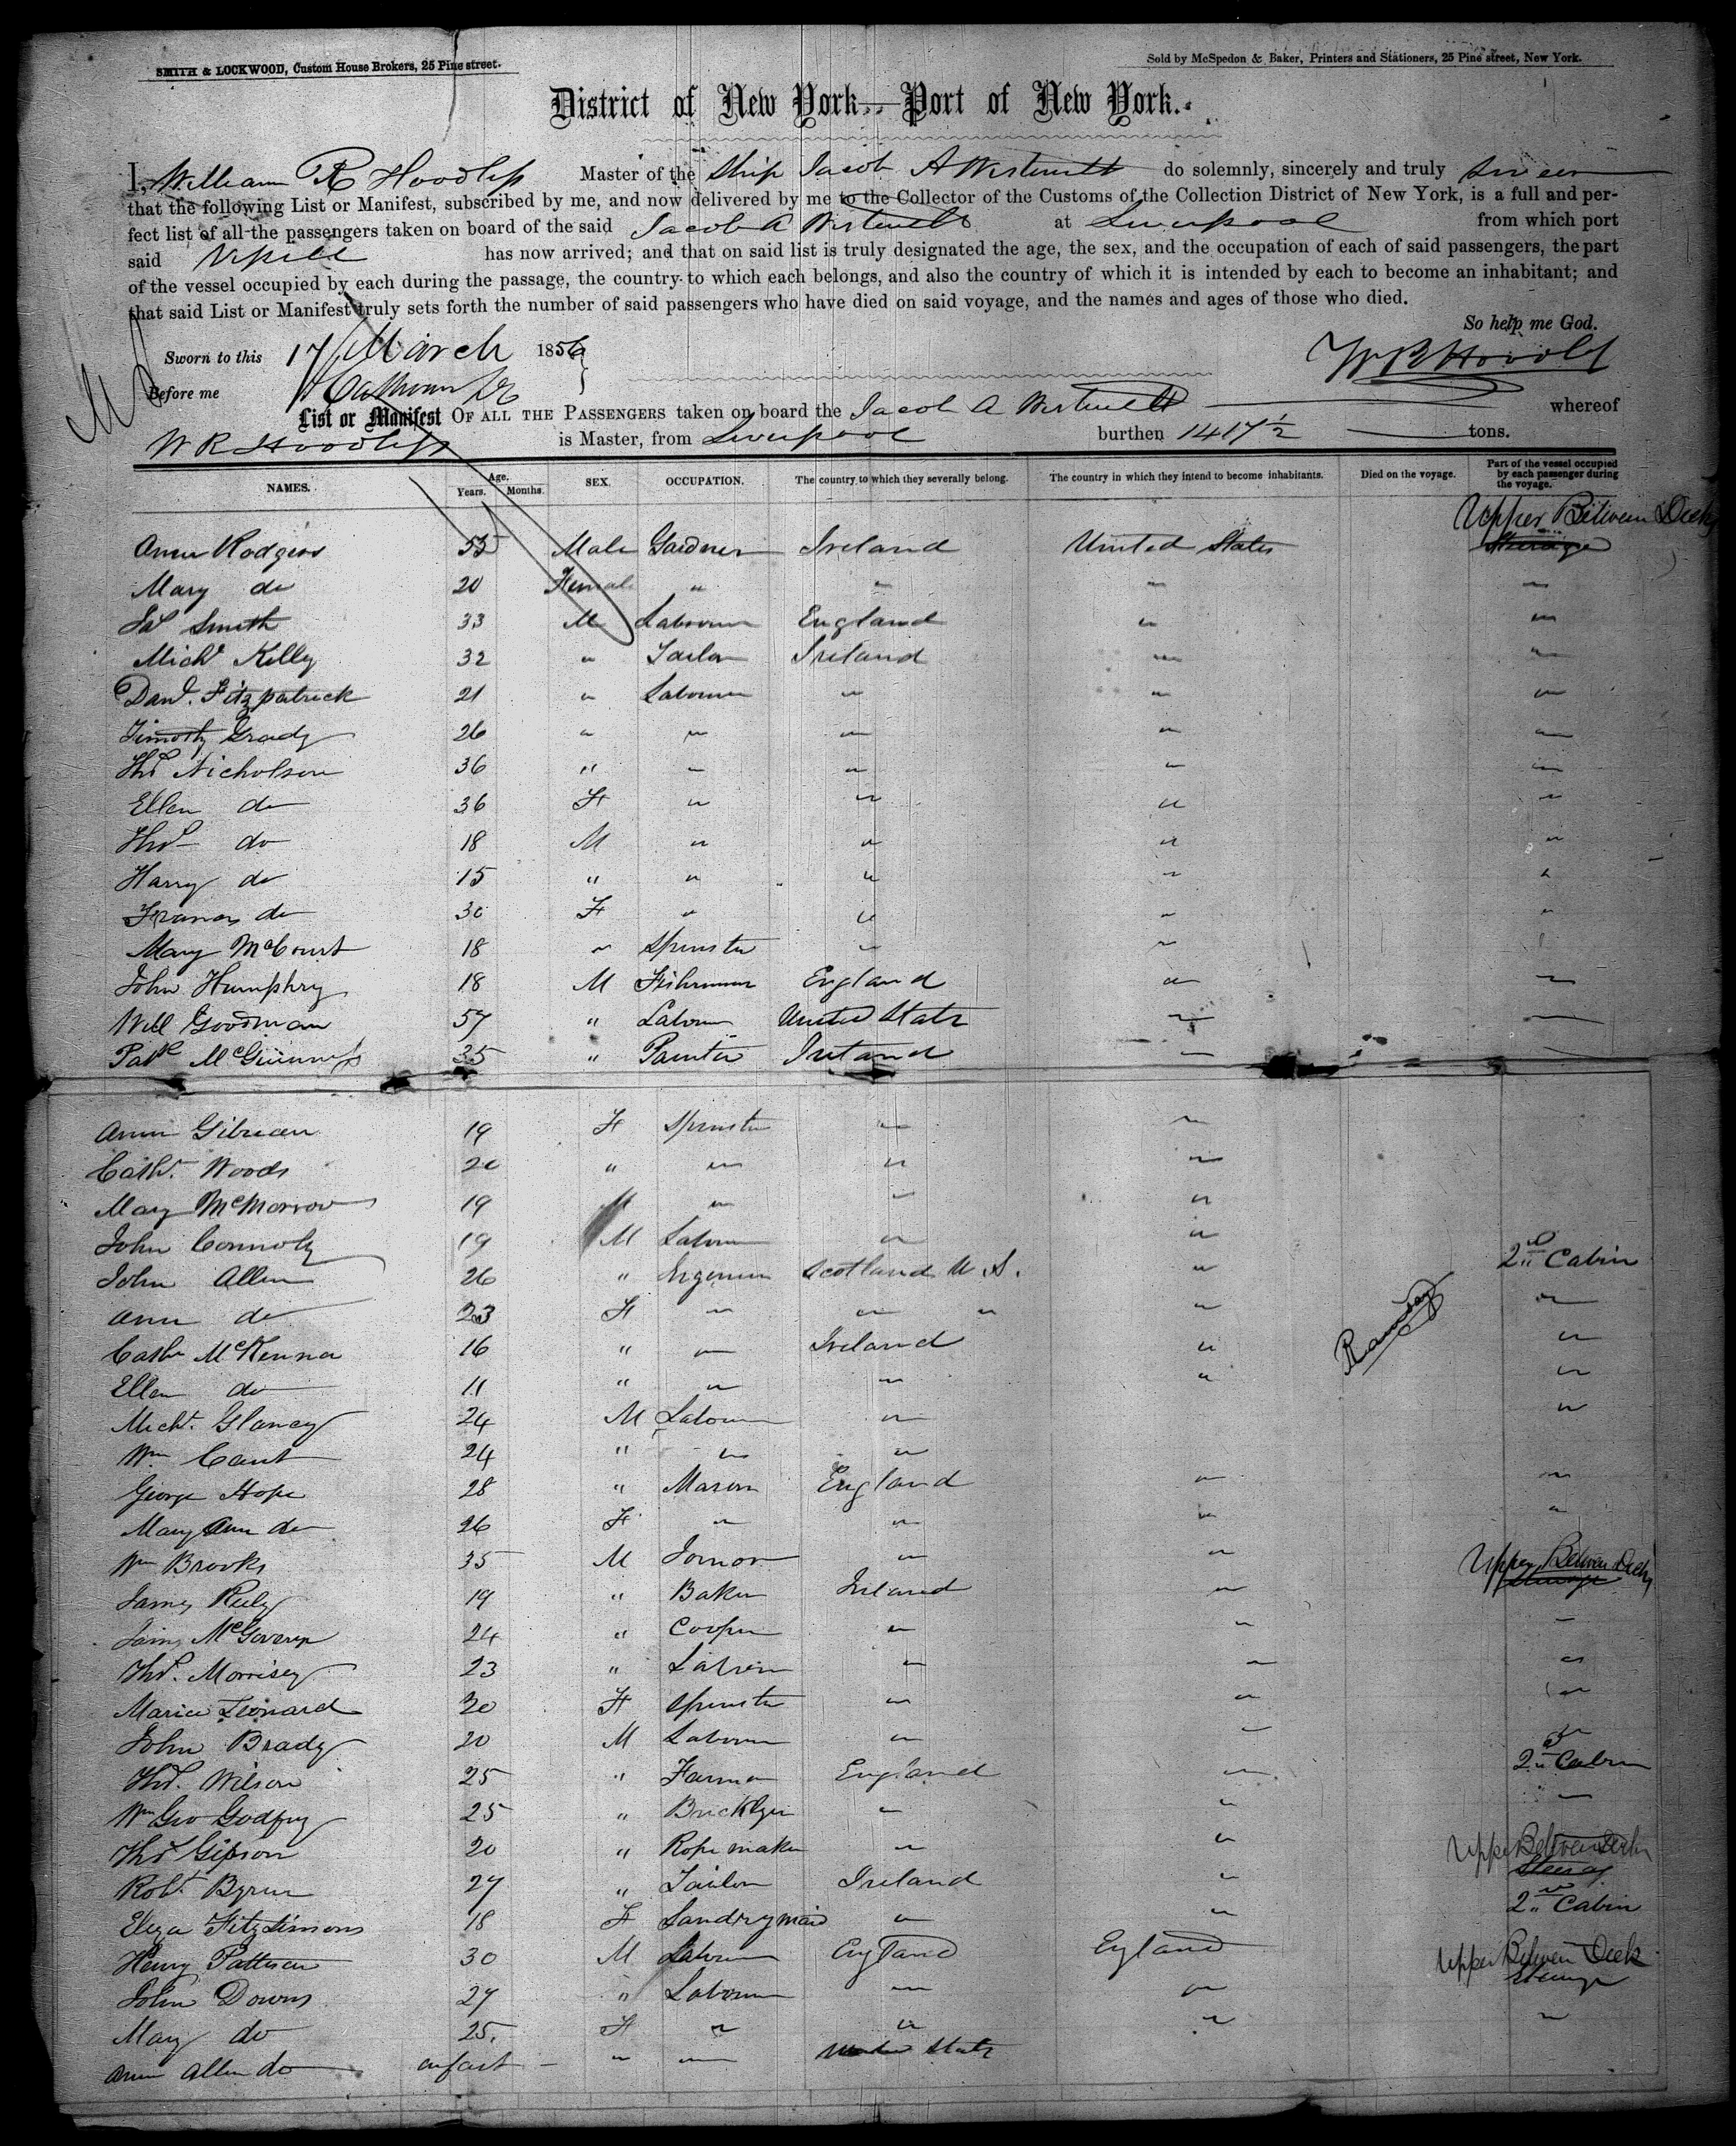 SMITH & LOCKWOOD, Custom House Brokers, 25 Pine street.
Sold by McSpedon & Baker, Printers and Stationers, 25 Pine street, New York.
District of New York—Port of New York.
I, William R Hoodless Master of the Ship Jacob A Westervelt do solemnly, sincerely and truly swear
that the following List or Manifest, subscribed by me, and now delivered by me to the Collector of the Customs of the Collection District of New York, is a full and per-
fect list of all the passengers taken on board of the said Jacob A Westervelt at Liverpool from which port
said Vessel has now arrived; and that on said list is truly designated the age, the sex, and the occupation of each of said passengers, the part
of the vessel occupied by each during the passage, the country to which each belongs, and also the country of which it is intended by each to become an inhabitant; and
that said List or Manifest truly sets forth the number of said passengers who have died on said voyage, and the names and ages of those who died.
So help me God.
Sworn to this 17 March 1856
Before me
List or Manifest OF ALL THE PASSENGERS taken on board the Jacob A Westervelt whereof
W R Hoodless is Master, from Liverpool burthen 1417 1/2 tons.
NAMES. Age. Years. Months. SEX. OCCUPATION. The country to which they severally belong. The country in which they intend to become inhabitants. Died on the voyage. Part of the vessel occupied by each passenger during the voyage.
Upper Between Decks
Ann Rodgers 55 Male Gardner Ireland United States Steerage
Mary do 20 Female " " " "
Jas Smith 33 M Labourer England " "
Michl Kelly 32 " Tailor Ireland " "
Danl. Fitzpatrick 21 " Labourer " " "
Timothy Grady 26 " " " " "
Thos Nicholson 36 " " " " "
Ellen do 36 F " " " "
Thos do 18 M " " " "
Harry do 15 " " " " "
Frances do 30 F " " " "
Mary McCourt 18 " Spinster " " "
John Humphry 18 M Fisherman England " "
Will Goodman 57 " Labourer United States " "
Patk McGuinness 35 " Painter Ireland "
Ann 19 F Spinster " "
Cathr. Woods 20 " " " "
Mary McMorrow 19 " " " "
John Connoly 19 M Labourer " "
John Allen 26 " Engineer Scotland U.S. " 2nd Cabin
Ann do 23 F " " " " "
Cathr McKenna 16 " " Ireland " "
Ramsay
Ellen do 11 " " " " "
Michl. Glancy 24 M Labourer " "
Wm Cant 24 " " "
George Hope 28 " Mason England " "
Mary Ann do 26 F " " " "
Wm Brooks 35 M " " Upper Between Decks
James Riely 19 " Baker Ireland " Steerage
James McGovern 24 " Cooper " " "
Thos. Morrisey 23 " Labourer " " "
Maria Leonard 20 F Spinster " " "
John Brady 20 M Labourer " " "
Thos. Wilson 25 " Farmer England " 2nd Cabin
Wm Geo Godfrey 25 " Bricklyer " " "
Thos Gipson 20 " Rope maker " " Upper Between Decks
Steerage
Robt Byrne 27 " Tailor Ireland "
Eliza Fitzsimons 18 F Landrymaid " " 2nd Cabin
Henry Patterson 30 M Labourer England England Upper Between Deck
John Downs 27 " Labourer " " Steerage
Mary do 25. F " " " "
Ann Allen do infant " " United States